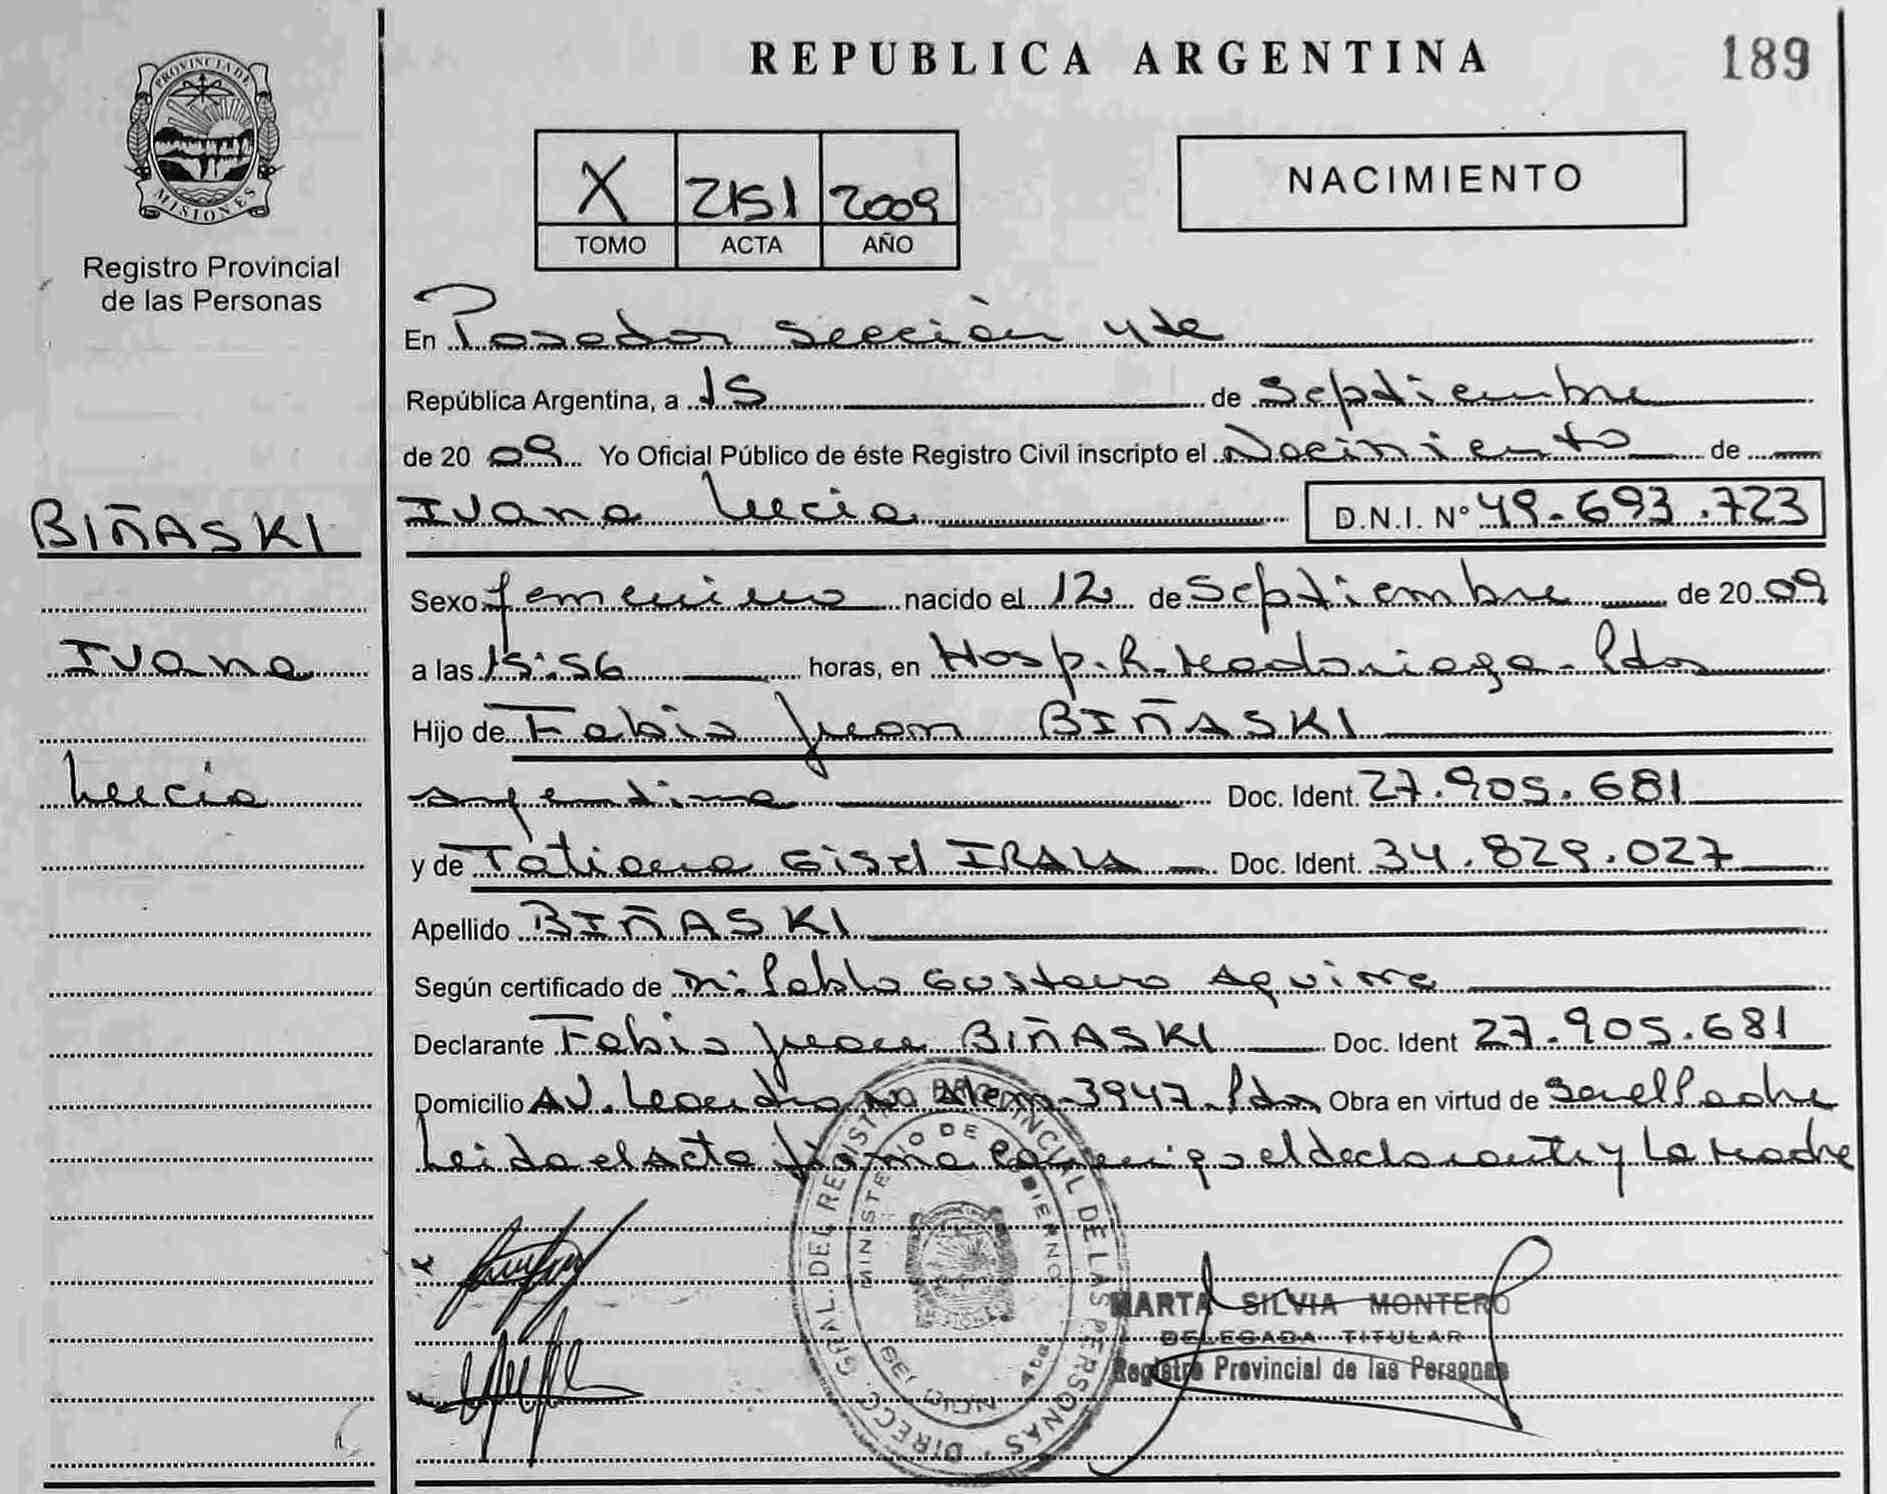 REPUBLICA ARGENTINA
189
PROVINCIA DE MISIONES
Registro Provincial
de las Personas
X 2151 2009
TOMO ACTA AÑO
NACIMIENTO
En Posadas sección 4ta
República Argentina, a 15 de Septiembre
de 20 09 Yo Oficial Público de éste Registro Civil inscripto el Nacimiento de
Ivana Lucia D.N.I. Nº 49.693.723
BIÑASKI
Ivana
Lucia
Sexo femenino nacido el 12 de Septiembre de 20 09
a las 15:56 horas, en Hosp. R. Madariaga - Pdas
Hijo de Fabio Juan BIÑASKI
Argentina Doc. Ident. 27.905.681
y de Tatiana Gisel IRALA Doc. Ident. 34.829.027
Apellido BIÑASKI
Según certificado de Pablo Gustavo Aguirre
Declarante Fabio Juan BIÑASKI Doc. Ident 27.905.681
Domicilio AV. Leandro N Alem - 3947 - Pdas Obra en virtud de Ser el Padre
Leida el Acta firma conmigo el declarante y La Madre
DIRECC. GRAL. DEL REGISTRO PROVINCIAL DE LAS PERSONAS
MINISTERIO DE GOBIERNO
SECCION 4ta
MARTA SILVIA MONTERO
DELEGADA TITULAR
Registro Provincial de las Personas